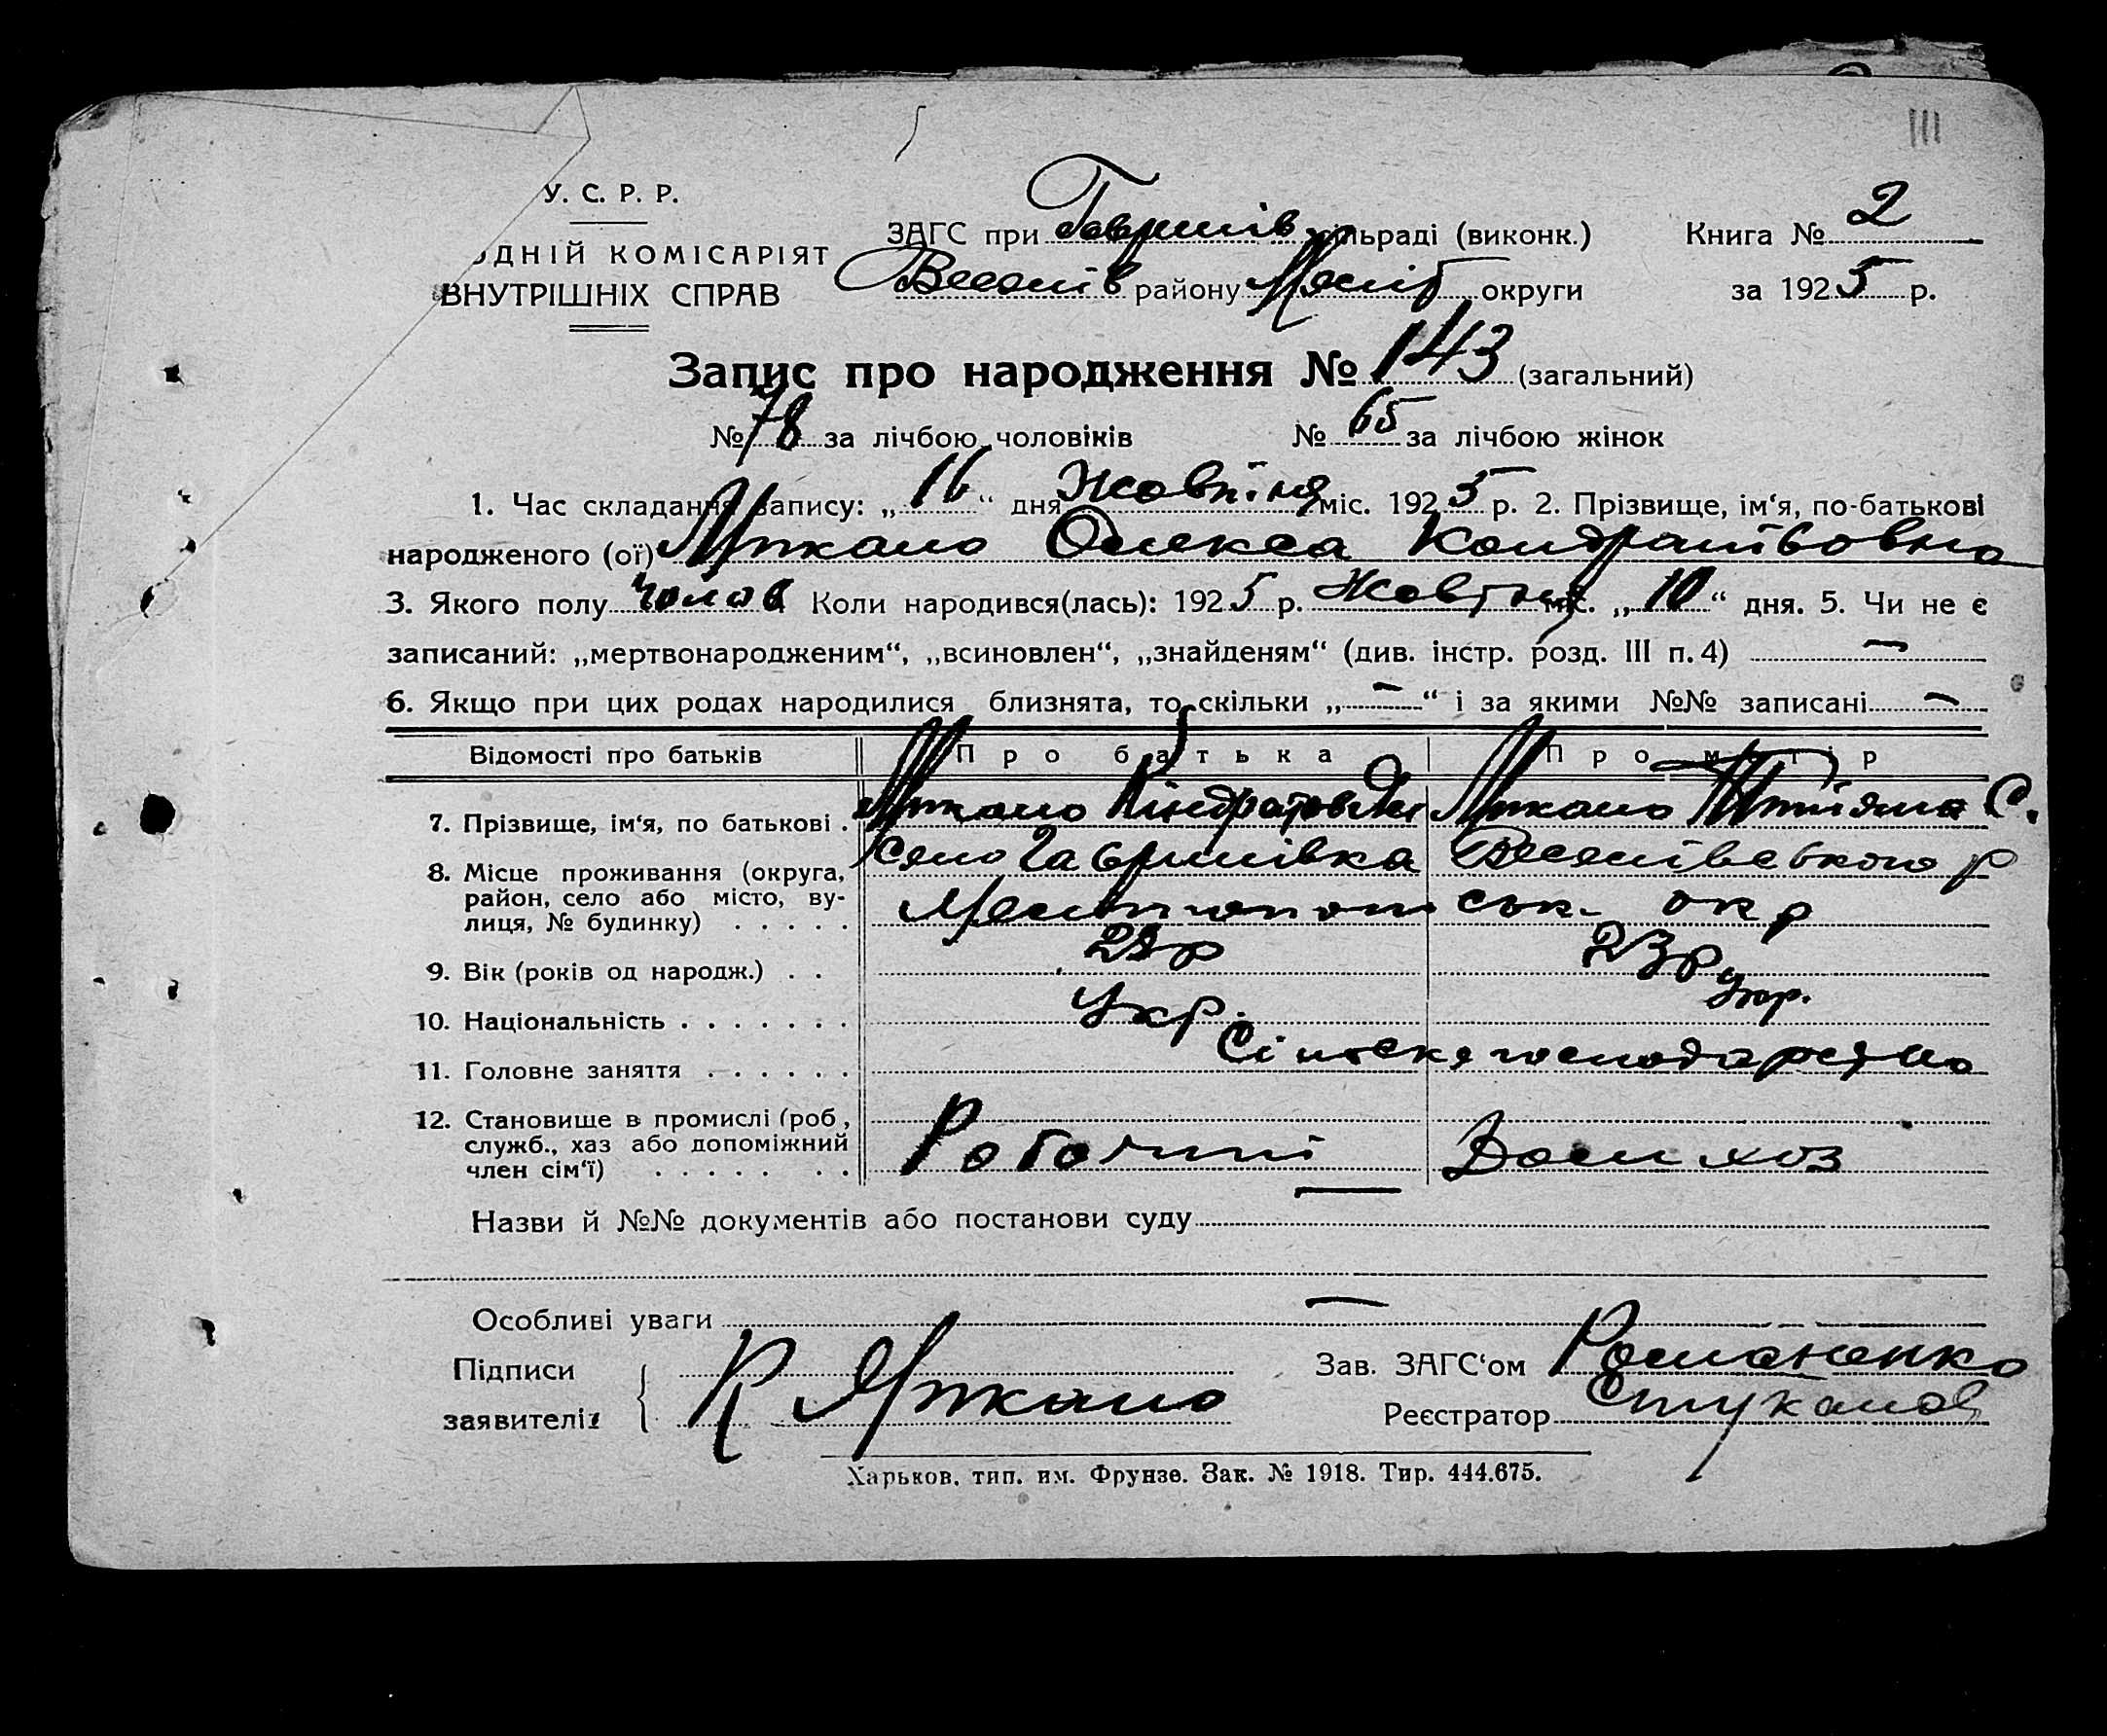 III
У. С. Р. Р.
ОДНІЙ КОМІСАРІЯТ
ВНУТРІШНІХ СПРАВ
ЗАГС при Гаврилів. ільраді (виконк.)
Книга № 2
Веселів району Меліт округи
за 1925 р.
Запис про народження № 143 (загальний)
№ 78 за лічбою чоловіків № 65 за лічбою жінок
1. Час складання запису: „16“ дня Жовтня міс. 1925 р. 2. Прізвище, ім‘я, по-батькові
народженого (ої) Олекса
3. Якого полу чолов Коли народився(лась): 1925 р. Жовтня міс. „10“ дня. 5. Чи не є
записаний: „мертвонародженим“, „всиновлен“, „знайденям“ (див. інстр. розд. III п. 4) —
6. Якщо при цих родах народилися близнята, то скільки „—“ і за якими №№ записані —
Відомості про батьків Про батька Про матір
7. Прізвище, ім‘я, по батькові . С.
8. Місце проживання (округа, район, село або місто, вулиця, № будинку) . . . . . село Гаврилівка Веселівського р
Мелітопольськ. окр
9. Вік (років од народж.) . . 23р
10. Національність . . . . . . . Укр. Укр.
11. Головне заняття . . . . . . Сільске господарство
12. Становище в промислі (роб, служб., хаз або допоміжний член сім‘ї) . . . . . . . Робочий Дом хоз
Назви й №№ документів або постанови суду —
Особливі уваги —
Підписи
заявителів К
Зав. ЗАГС‘ом Романенко
Реєстратор Стукалов
Харьков, тип. им. Фрунзе. Зак. № 1918. Тир. 444.675.